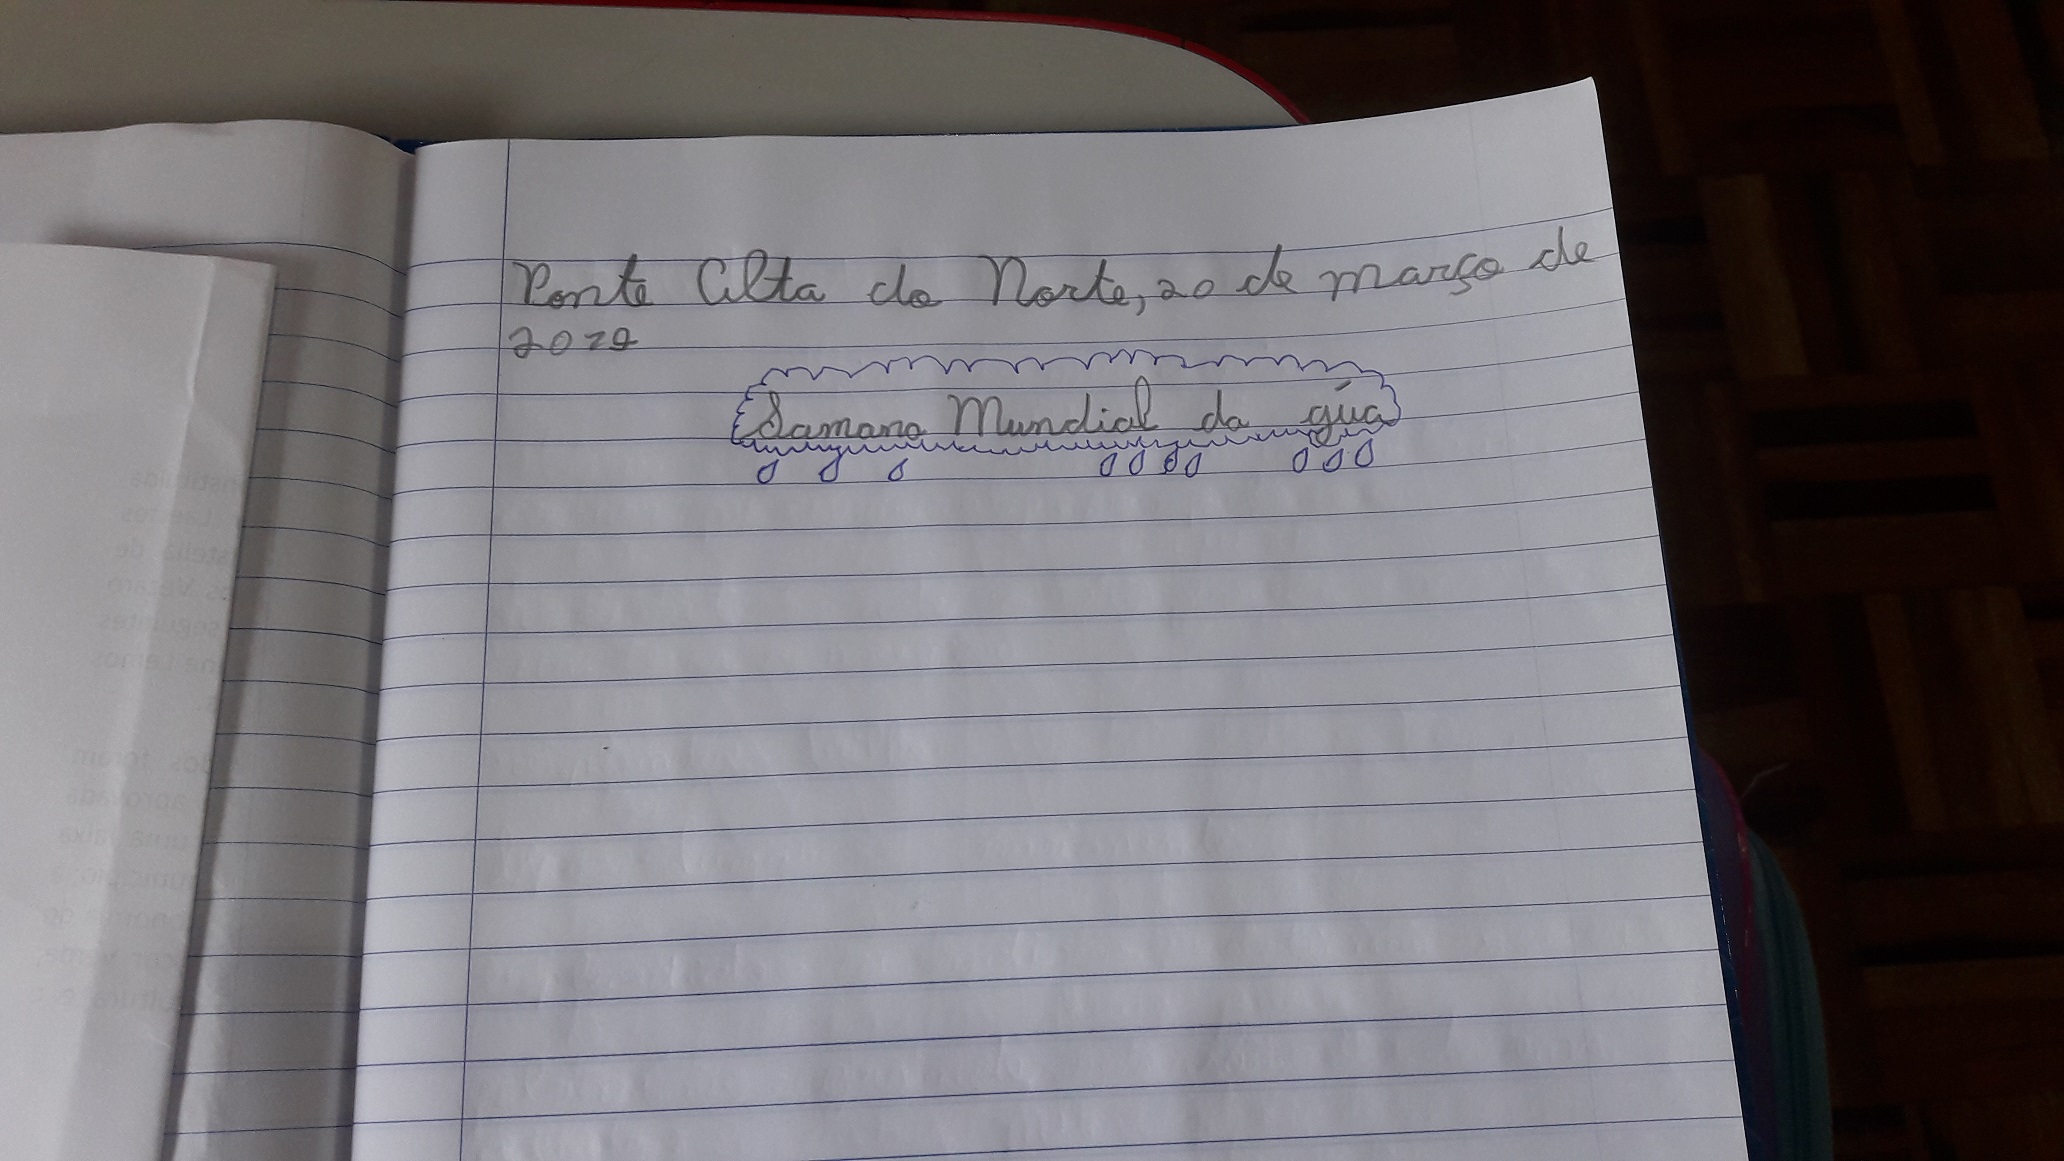 Ponte Alta do Norte, 20 de março de
2019
Samana Mundial da gúa